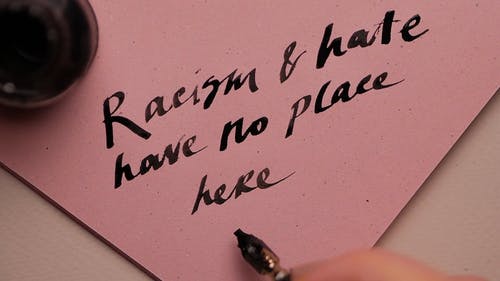 Racism & hate
have no place
here